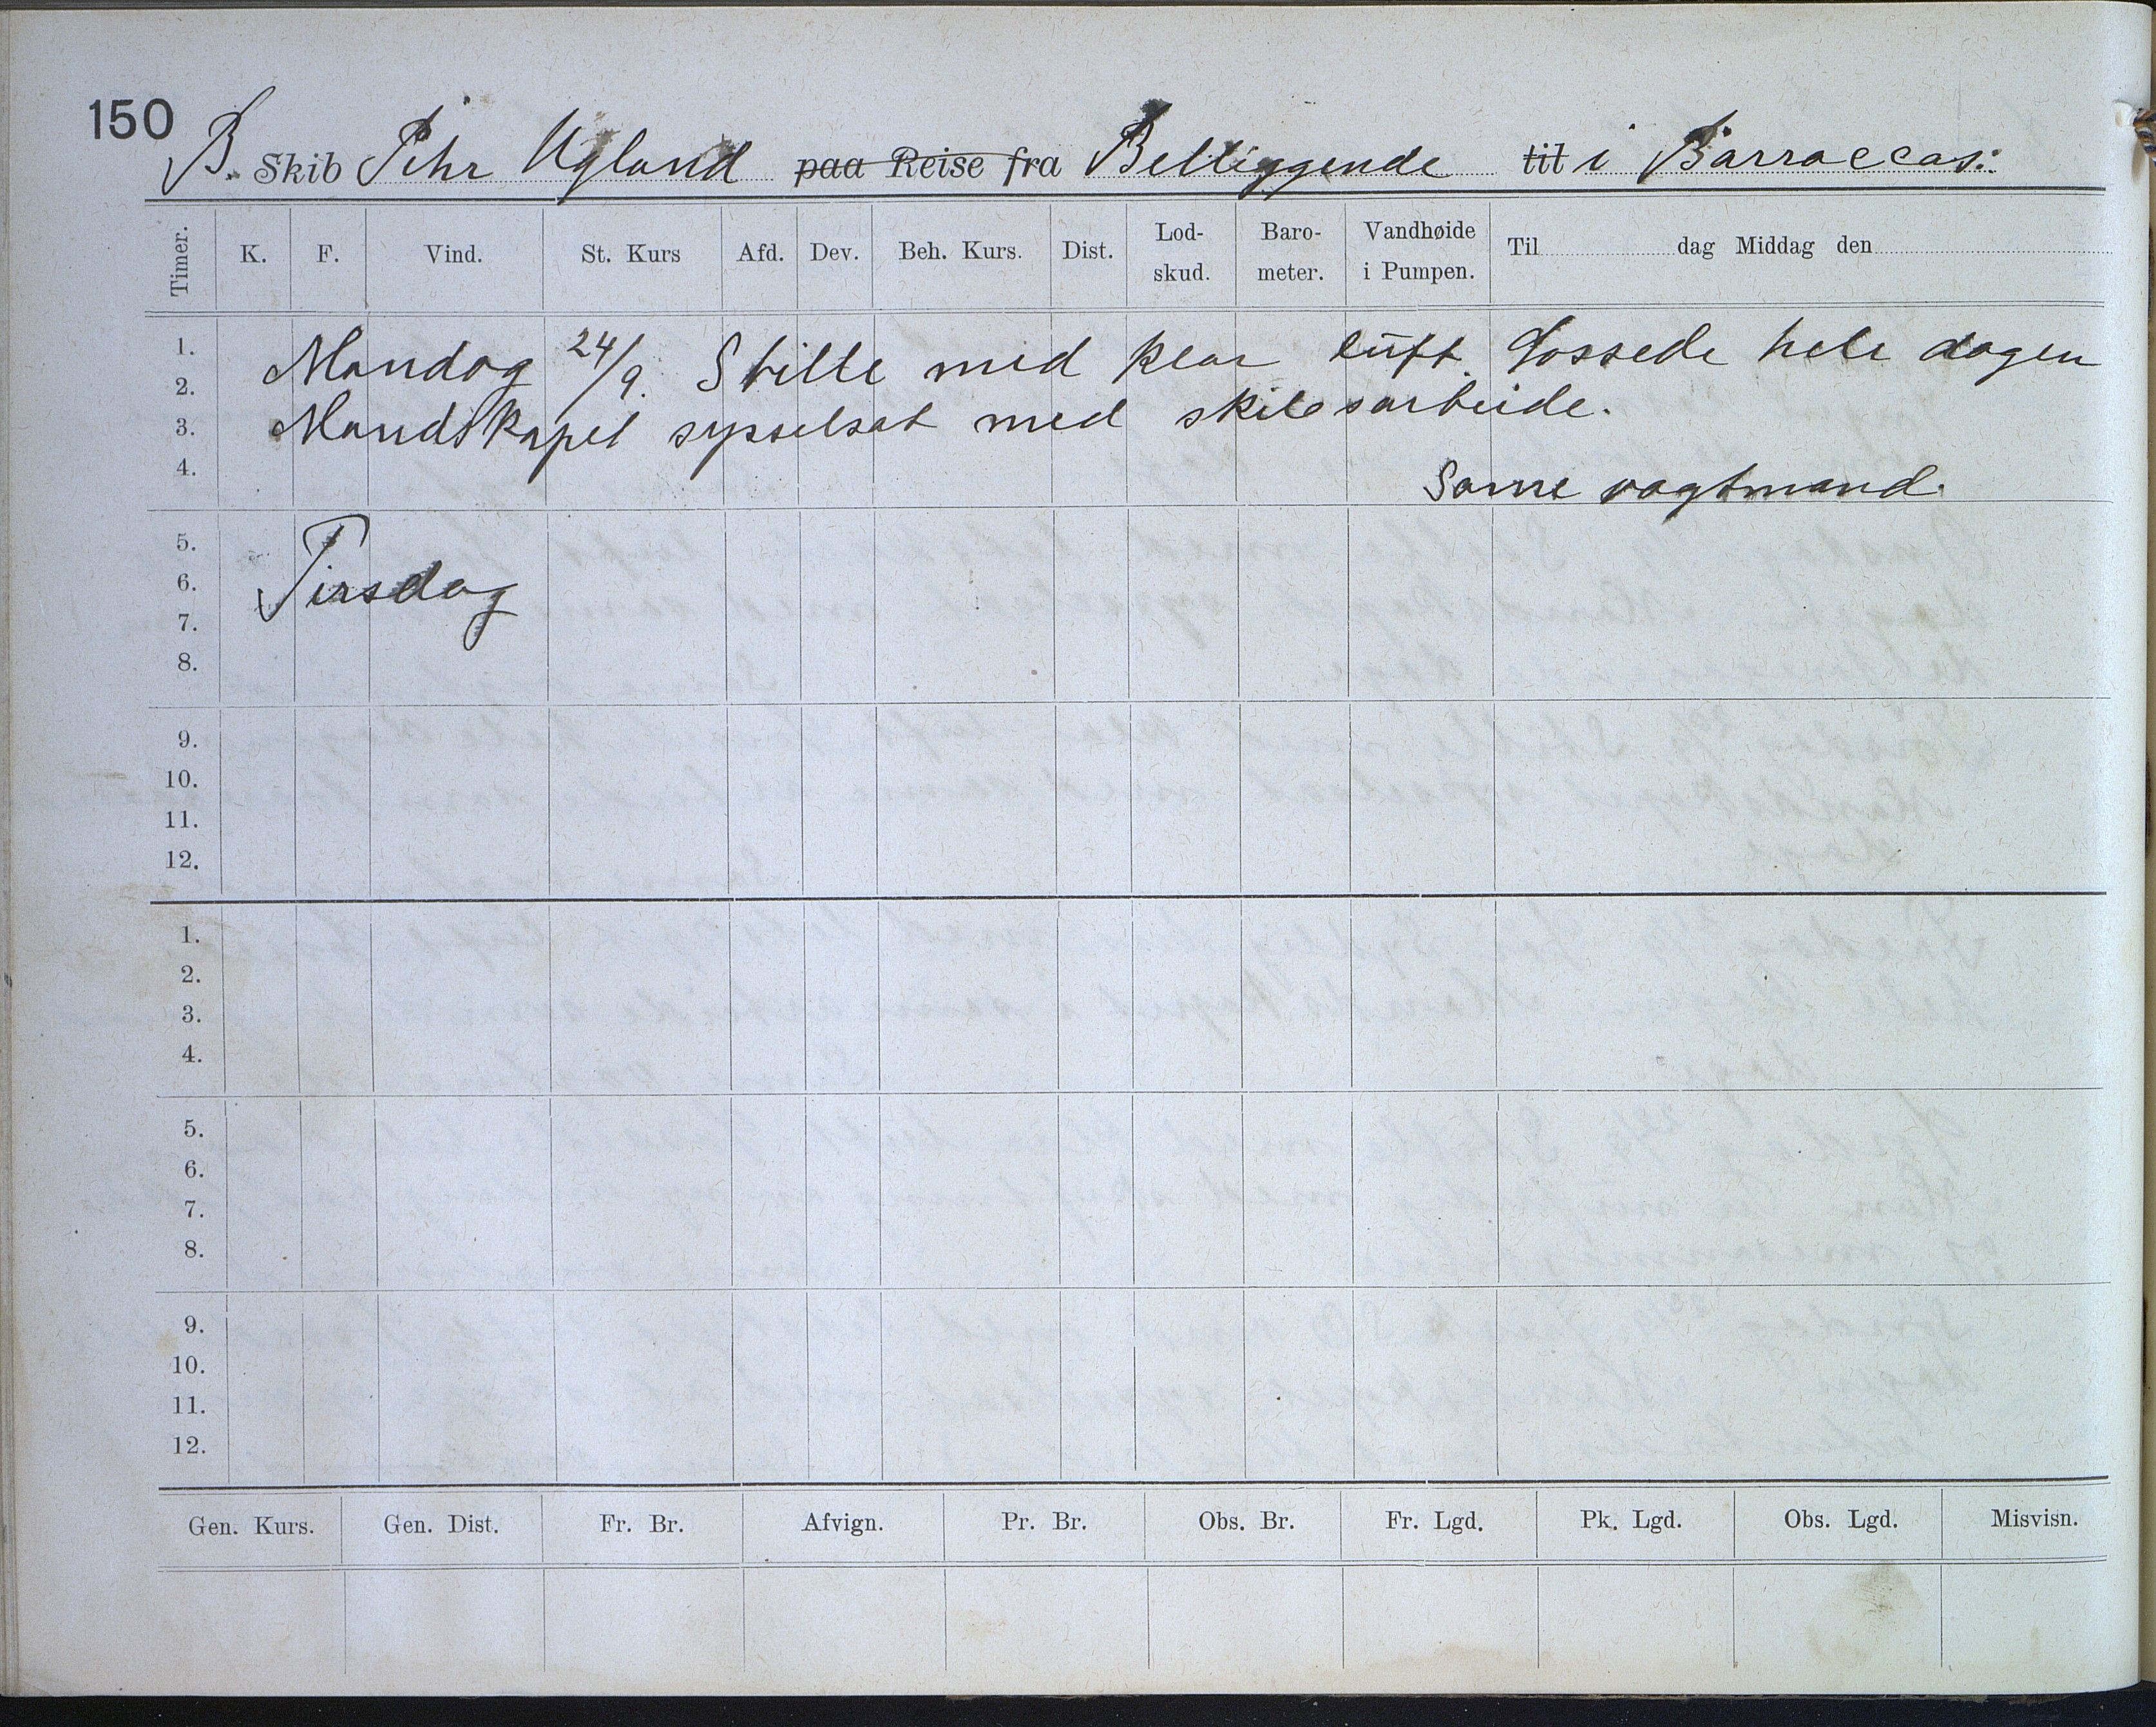 150
B. Skib Pehr Ugland paa Reise fra Belliggende til i Barraccas.
Timer. K. F. Vind. St. Kurs Afd. Dev. Beh. Kurs. Dist. Lod-skud. Baro-meter. Vandhøide i Pumpen. Til dag Middag den
1.
Mandag 24/9. Stille med klar luft. Lossede hele dagen
2.
Mandskapet sysselsat med skibsarbeide.
3.
4.
Samme vagtmand.
5.
6.
Tirsdag
7.
8.
9.
10.
11.
12.
1.
2.
3.
4.
5.
6.
7.
8.
9.
10.
11.
12.
Gen. Kurs. Gen. Dist. Fr. Br. Afvign. Pr. Br. Obs. Br. Fr. Lgd. Pk. Lgd. Obs. Lgd. Misvisn.